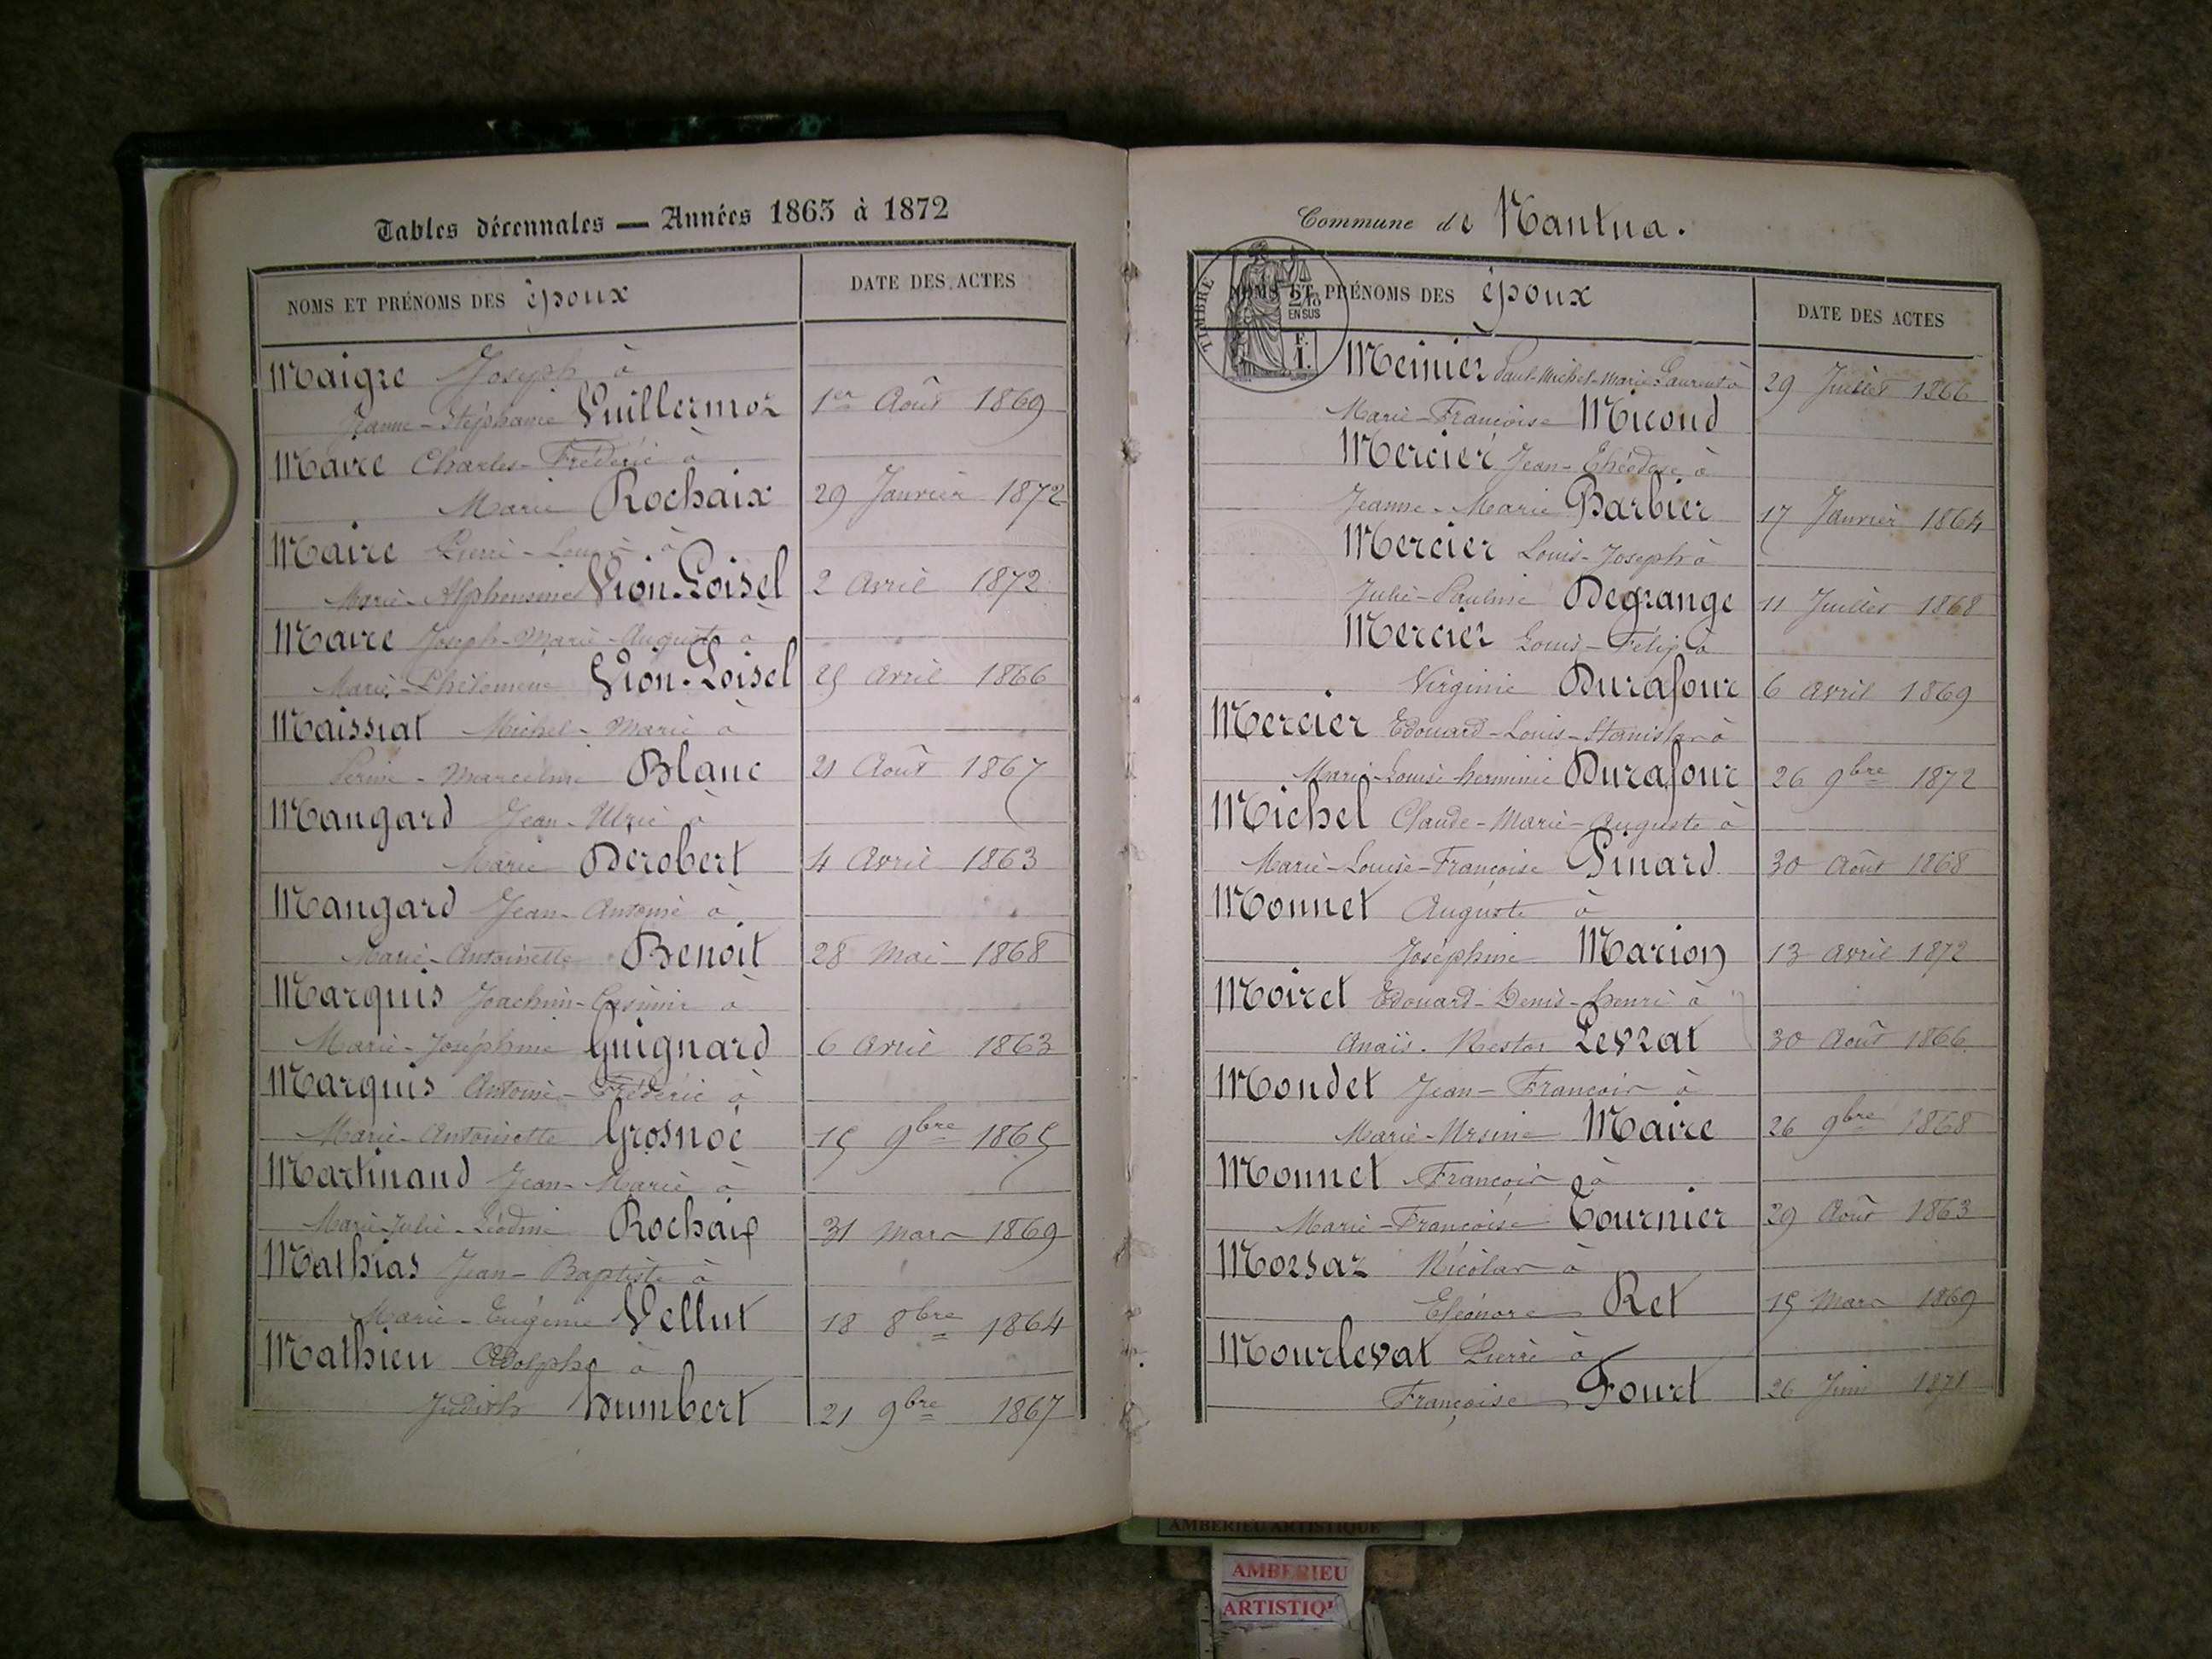 Tables décennales — Années 1863 à 1872
NOMS ET PRÉNOMS DES époux
DATE DES ACTES
Maigre Joseph à
Jeanne-Stéphanie Vuillermoz 1er Août 1869
Maire Charles-Frédéric à
Marie Rochaix 29 Janvier 1872
Maire Pierre-Louis à
Marie-Alphonsine Vion-Loisel 2 Avril 1872
Maire Joseph-Marie-Auguste à
Marie-Philomène Vion-Loisel 25 Avril 1866
Maissiat Michel-Marie à
Marceline Blanc 21 Août 1867
Mangard Jean-Ulric à
Marie Derobert 4 Avril 1863
Mangard Jean-Antoine à
Marie-Antoinette Benoit 28 Mai 1868
Marquis Joachim-Casimir à
Marie-Joséphine Guignard 6 Avril 1863
Marquis Antoine-Frédéric à
Marie-Antoinette Grosnoé 15 9bre 1865
Martinand Jean-Marie à
Marie-Julie-Léodine Rochaix 31 Mars 1869
Mathias Jean-Baptiste à
Marie-Eugénie Vellut 18 8bre 1864
Mathieu Adolphe à
Judith humbert 21 9bre 1867
Commune de Nantua.
TIMBRE
2/10
EN SUS
F.
1.
NOMS ET PRÉNOMS DES époux
DATE DES ACTES
Meinier Paul-Michel-Marie-Laurent à 29 Juillet 1866
Marie-Françoise Micoud
Mercier Jean-Théodose à
Jeanne-Marie Barbier 17 Janvier 1864
Mercier Louis-Joseph à
Julie-Pauline Degrange 11 Juillet 1868
Mercier Louis-Félix à
Virginie Durafour 6 Avril 1869
Mercier Edouard-Louis-Stanislas à
Marie-Louise herminie Durafour 26 9bre 1872
Michel Claude-Marie-Auguste à
Marie-Louise-Françoise Pinard 30 Août 1868
Monnet Auguste à
Joséphine Marion 13 Avril 1872
Moiret Edouard-Denis-henri à
Anaïs-Nestor Levrat 30 Août 1866
Moudet Jean-François à
Marie-Ursine Maire 26 9bre 1868
Monnet François à
Marie-Françoise Tournier 29 Août 1863
Morsaz Nicolas à
Eléonore Ret 15 Mars 1869
Mourlevat Pierre à
Françoise Fouret 26 Juin 1871
AMBERIEU ARTISTIQUE
AMBERIEU
ARTISTIQU